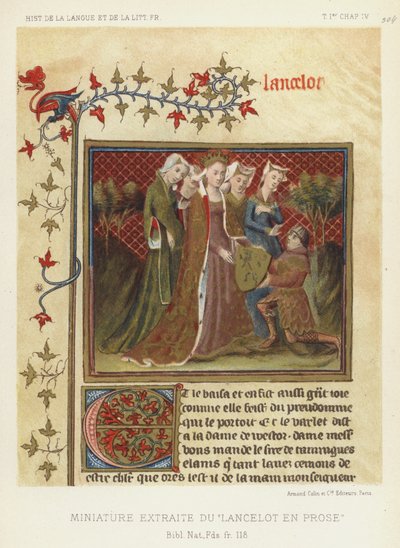 HIST. DE LA LANGUE ET DE LA LITT. FR.
T. Ier CHAP. IV
304
lancelot
Et le baisa et en fist aussi grãt ioie
comme elle feist du preudomme
qui le portoit Et le varlet dist
a la dame de
dame mess
vous mande le sire de
elams q̃ tant
de la main monseigneur
Armand Colin et Cie Editeurs, Paris.
MINIATURE EXTRAITE DU "LANCELOT EN PROSE"
Bibl. Nat., Fds. fr. 118.